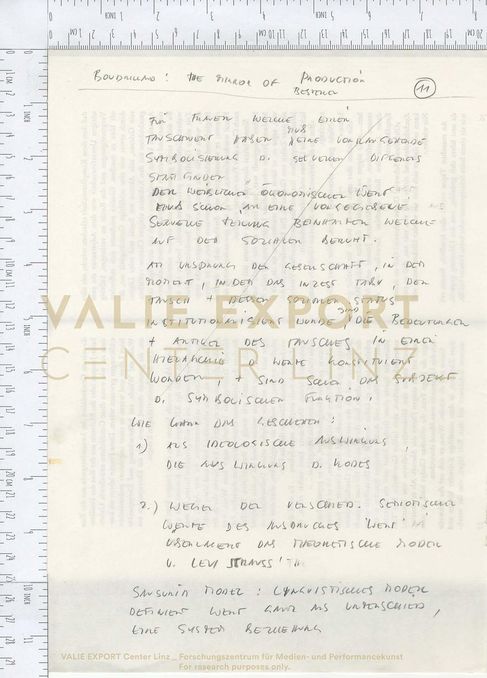 BOUDRILLARD: THE MIRROR OF PRODUCTION
BESTEHEN
11
FÜR FRAUEN WELCHE EINEN
TAUSCHWERT HABEN MUSS EINE VORHANGEHENDE
SYMBOLISIERUNG D. SEXUELLEN DIFFERENZ
STATTFINDEN
DER WEIBLICHE ÖKONOMISCHE WERT
MUSS SCHON AN EINE VORGEGEBENE
SEXUELLE TEILUNG BEINHALTEN WELCHE
AUF DER SOZIALEN BERUHT.
AM URSPRUNG DER GESELLSCHAFT, IN DEM
MOMENT, IN DEM DAS INZEST TABU, DER
TAUSCH + DESSEN SOZIALER STATUS
INSTITUTIONALISIERT WURDE SIND DIE BEDEUTUNGEN
+ ARTIKEL DES TAUSCHES IN EINER
HIERARCHIE D. WERTE KONSTITUIERT
WORDEN, + SIND SCHON DAS SUBJEKT
D. SYMBOLISCHEN FUNKTION.
WIE KANN DAS GESCHEHEN:
1) ALS IDEOLOGISCHE AUSWIRKUNG,
DIE AUSWIRKUNG D. KODES
2.) WEGEN DER VERSCHIED. SEMIOTISCHEN
WERTE DES AUSDRUCKES 'WERT'
DAS THEORETISCHE MODELL
V. LEVI STRAUSS'
SAUSSURE MODELL: LINGUISTISCHES MODELL
DEFINIERT WERT GANZ ALS UNTERSCHIED,
EINE SYSTEM BEZIEHUNG
VALIE EXPORT
CENTER LINZ
VALIE EXPORT Center Linz _ Forschungszentrum für Medien- und Performancekunst
For research purposes only.